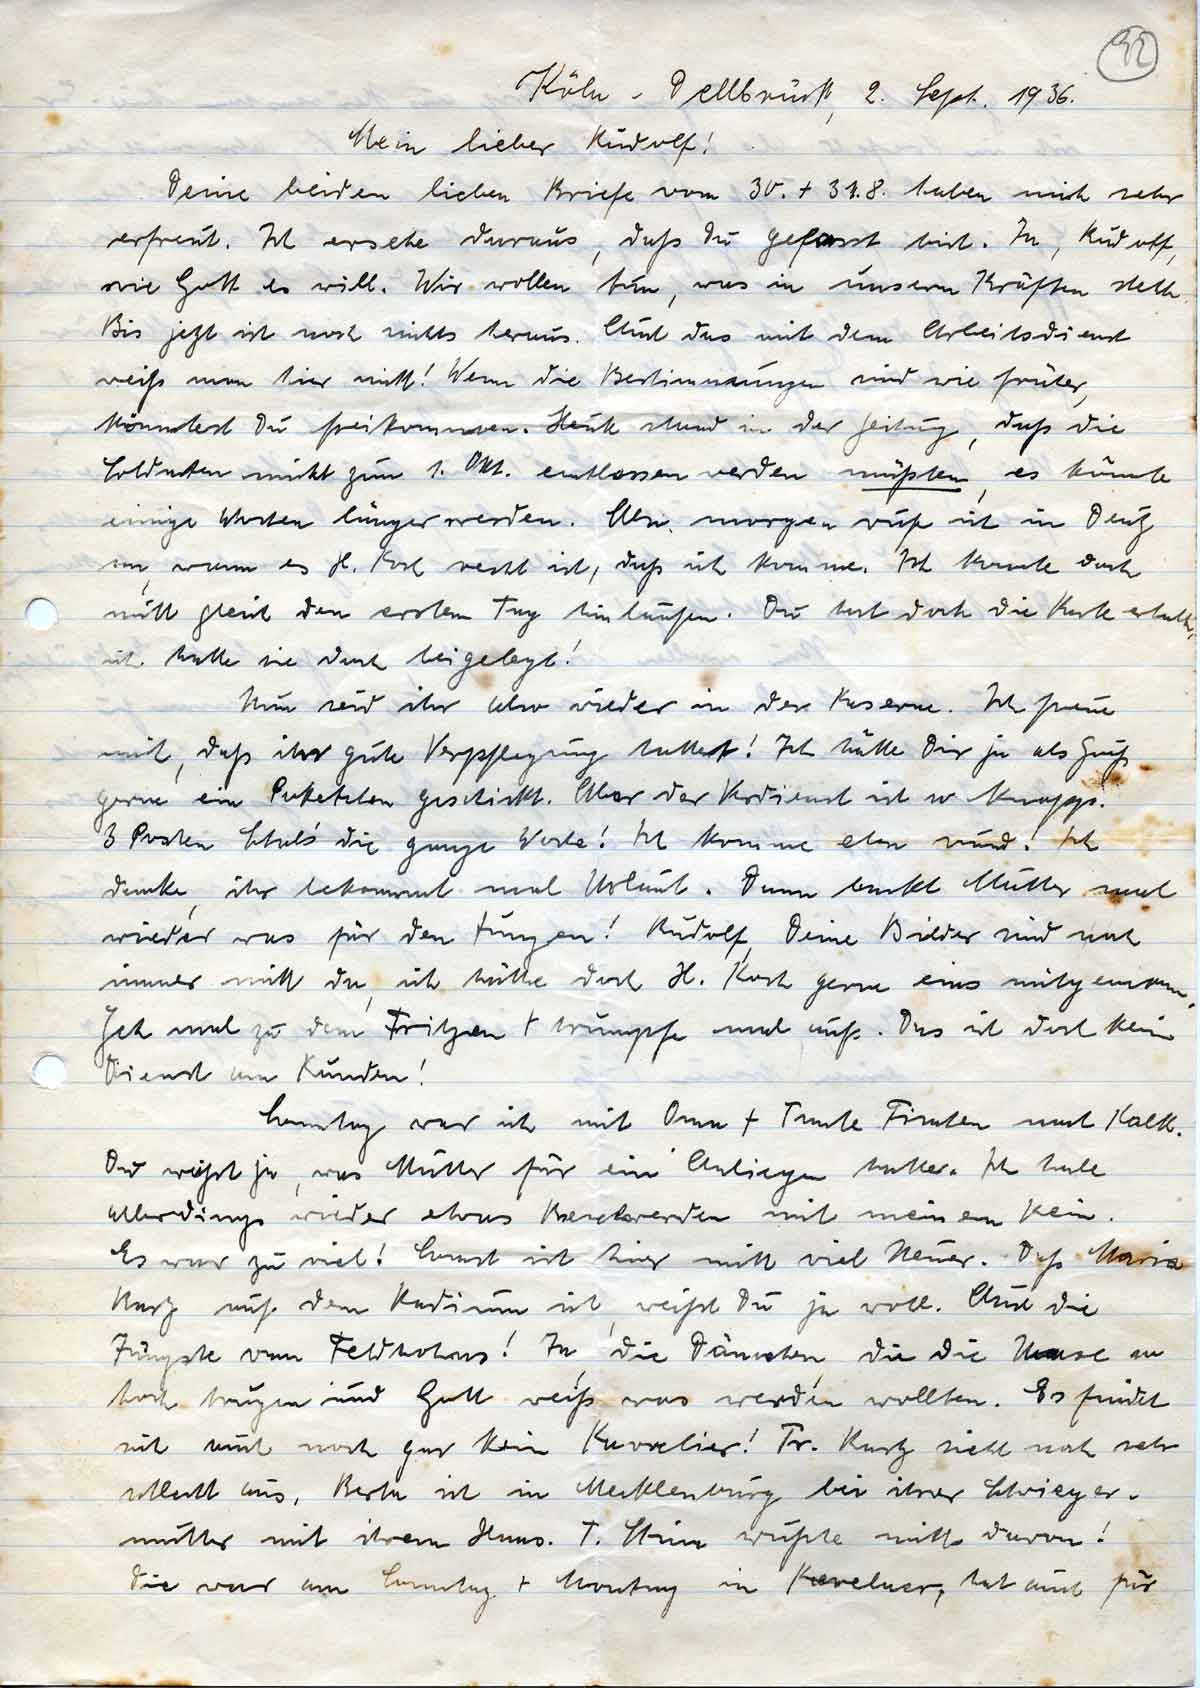 92
Köln - Dellbrück, 2. Sept. 1936.
Mein lieber Rudolf!
Deine beiden lieben Briefe vom 30. + 31.8. haben mich sehr
erfreut. Ich ersehe daraus, daß Du gefasst bist. Ja, Rudolf,
wie Gott es will. Wir wollen tun, was in unsern Kräften steht.
Bis jetzt ist noch nichts heraus. Auch das mit dem Arbeitsdienst
weiß man hier nicht! Wenn die Bestimmungen sind wie früher,
könntest Du freikommen. Heute stand in der Zeitung, daß die
Soldaten nicht zum 1. Okt. entlassen werden müßten, es könnte
einige Wochen länger werden. Also, morgen rufe ich in Deutz
an, wann es H. Koch recht ist, daß ich komme. Ich konnte doch
nicht gleich den ersten Tag hinlaufen. Du hast doch die Karte erhalten,
ich hatte sie doch beigelegt!
Nun seid ihr also wieder in der Kaserne. Ich freue
mich, daß ihr gute Verpflegung hattet! Ich hätte Dir ja als Gruß
gerne ein Paketchen geschickt. Aber der Verdienst ist so knapp!
3 Posten Schals die ganze Woche! Ich komme eben rund! Ich
denke, ihr bekommt mal Urlaub. Dann backt Mutter mal
wieder was für den Jungen! Rudolf, Deine Bilder sind noch
immer nicht da, ich hätte doch H. Koch gerne eins mitgenommen.
Geh mal zu dem Fritzen + trumpfe mal auf. Das ist doch kein
Dienst am Kunden!
Sonntag war ich mit Oma + Tante Finchen nach Kalk.
Du weißt ja, was Mutter für ein Anliegen hatte. Ich habe
allerdings wieder etwas Beschwerden mit meinem Bein.
Es war zu viel! Sonst ist hier nicht viel Neues. Daß Maria
Kurtz auf dem Radium ist, weißt Du ja wohl. Auch die
Jüngste von Feldhohns! Ja, die Dämchen, die die Nase so
hoch trugen und Gott weiß was werden wollten. Es findet
sich auch noch gar kein Kavalier! Fr. Kurtz sieht noch sehr
schlecht aus. Berta ist in Mecklenburg bei ihrer Schwieger-
mutter mit ihrem Hans. T. Stina wußte nichts davon!
Die war am Sonntag + Montag in Kevelaer, hat auch für